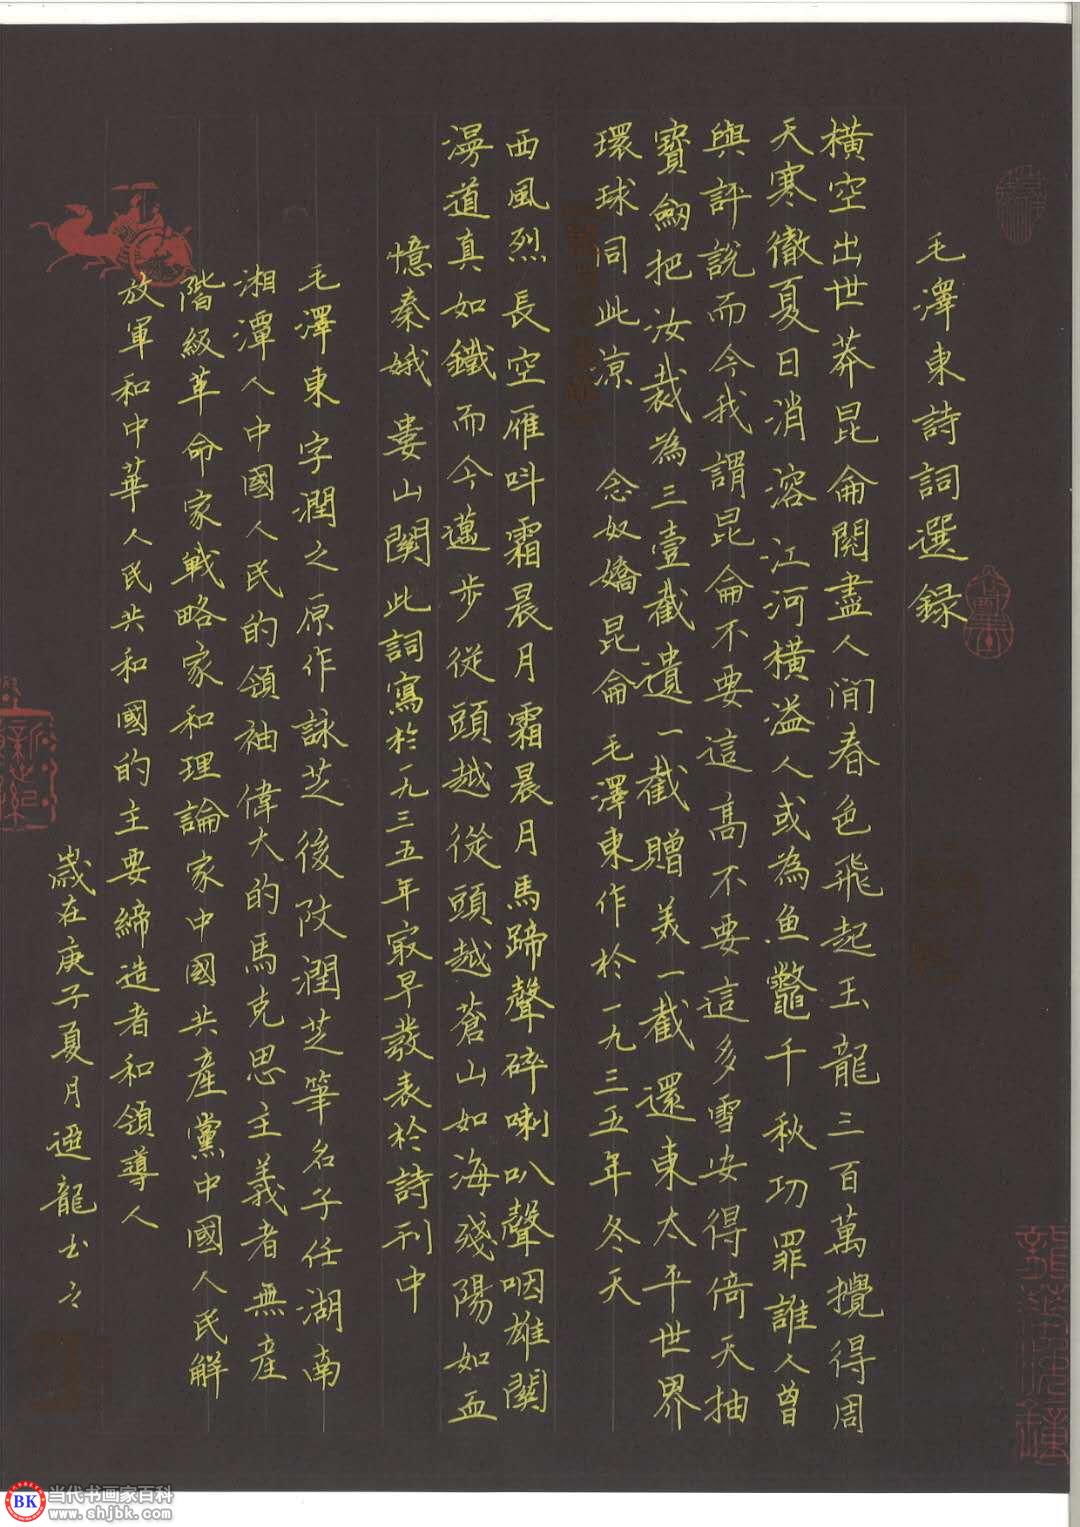 毛澤東詩詞選録
橫空出世莽昆侖閱盡人間春色飛起玉龍三百萬攪得周
天寒徹夏日消溶江河橫溢人或為魚鼈千秋功罪誰人曾
與評說而今我謂昆侖不要這高不要這多雪安得倚天抽
寳劒把汝裁為三壹截遺一截贈美一截還東太平世界
環球同此凉 念奴嬌昆侖 毛澤東作於一九三五年冬天
西風烈長空雁叫霜晨月霜晨月馬蹄聲碎喇叭聲咽雄關
漫道真如鐵而今邁步從頭越從頭越蒼山如海殘陽如血
憶秦娥婁山関此詞寫於一九三五年最早發表於詩刊中
毛澤東字潤之原作詠芝後改潤芝筆名子任湖南
湘潭人中國人民的領袖偉大的馬克思主義者無產
階級革命家戰略家和理論家中國共產黨中國人民解
放軍和中華人民共和國的主要締造者和領導人
歲在庚子夏月 龍书
BK 当代书画家百科
www.shjbk.com